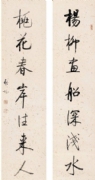 楊柳畫船深淺水
桃花春岸往來人